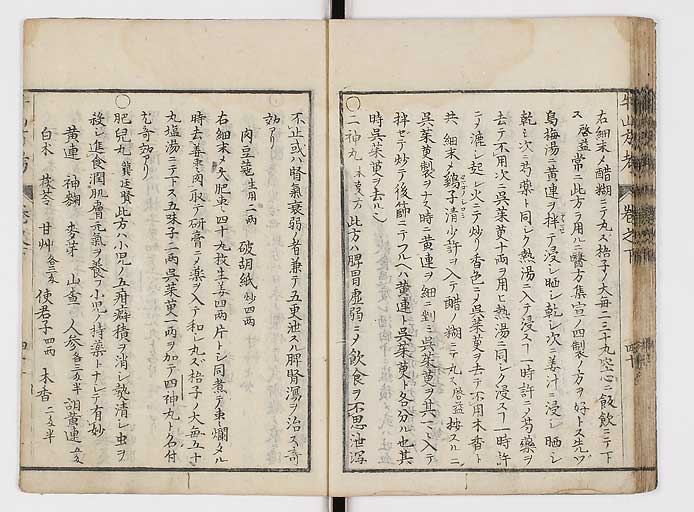 牛山方考 卷之下
右細末メ醋糊ニテ丸ズ梧子ノ大毎ニ三十丸空心ニ飯飲ニテ下
ス 啓益常ニ此方ヲ用ルニ醫方集宣ノ四製ノ方ヲ好トス先ヅ
烏梅湯ニ黄連ヲ拌テ浸シ晒シ乾シ次ニ姜汁ニ浸シ晒シ
乾シ次ニ芍薬ト同シク熱湯ニ入テ浸スヿ一時許ニノ芍薬ヲ
去テ不用次ニ呉茱萸十両ヲ用ヒ熱湯ニ同シク浸スヿ一時許
ニメ漉シ起シ火ニテ炒リ香色ニメ呉茱萸ヲ去テ不用木香ト
共ニ細末メ鷄子清少許ヲ入テ醋ノ糊ニテ丸ス 啓益按スルニ
呉茱萸製ヲナス時ニ黄連ヲ細ニ剉ミ呉茱萸ヲ其マヽニ入テ
拌ゼテ炒テ後篩ニテフルヘハ黄連ト呉茱萸ト各分ル也其
時呉茱萸ヲ去ル
〇二神丸 本方 此方ハ脾胃虚弱ニメ飲食ヲ不思泄瀉
不止或ハ腎氣衰弱ノ者兼テ五更泄スル脾腎瀉ヲ治ス奇
効アリ
肉豆蔲 生用二両 破胡紙 炒四両
右細末メ大肥棗四十九枚生姜四両片トシ同煮テ棗爛タル
時去姜棗肉取テ研膏ニメ薬ヲ入テ和シ丸ズ梧子ノ大毎五十
丸塩湯ニテ下ス五味子二両呉茱萸一両ヲ加テ四神丸ト名付
尤奇効アリ
〇肥兒丸 龔廷賢 此方ハ小児ノ五疳癖積ヲ消シ熱清シ虫ヲ
殺シ進食潤肌膚元氣ヲ養フ小児ノ持薬トナシテ有妙
黄連 神麹 麥芽 山査 人参 各三匁半 胡黄連 五匁
白朮 茯苓 甘艸 各三匁 使君子 四両 木香 二匁半